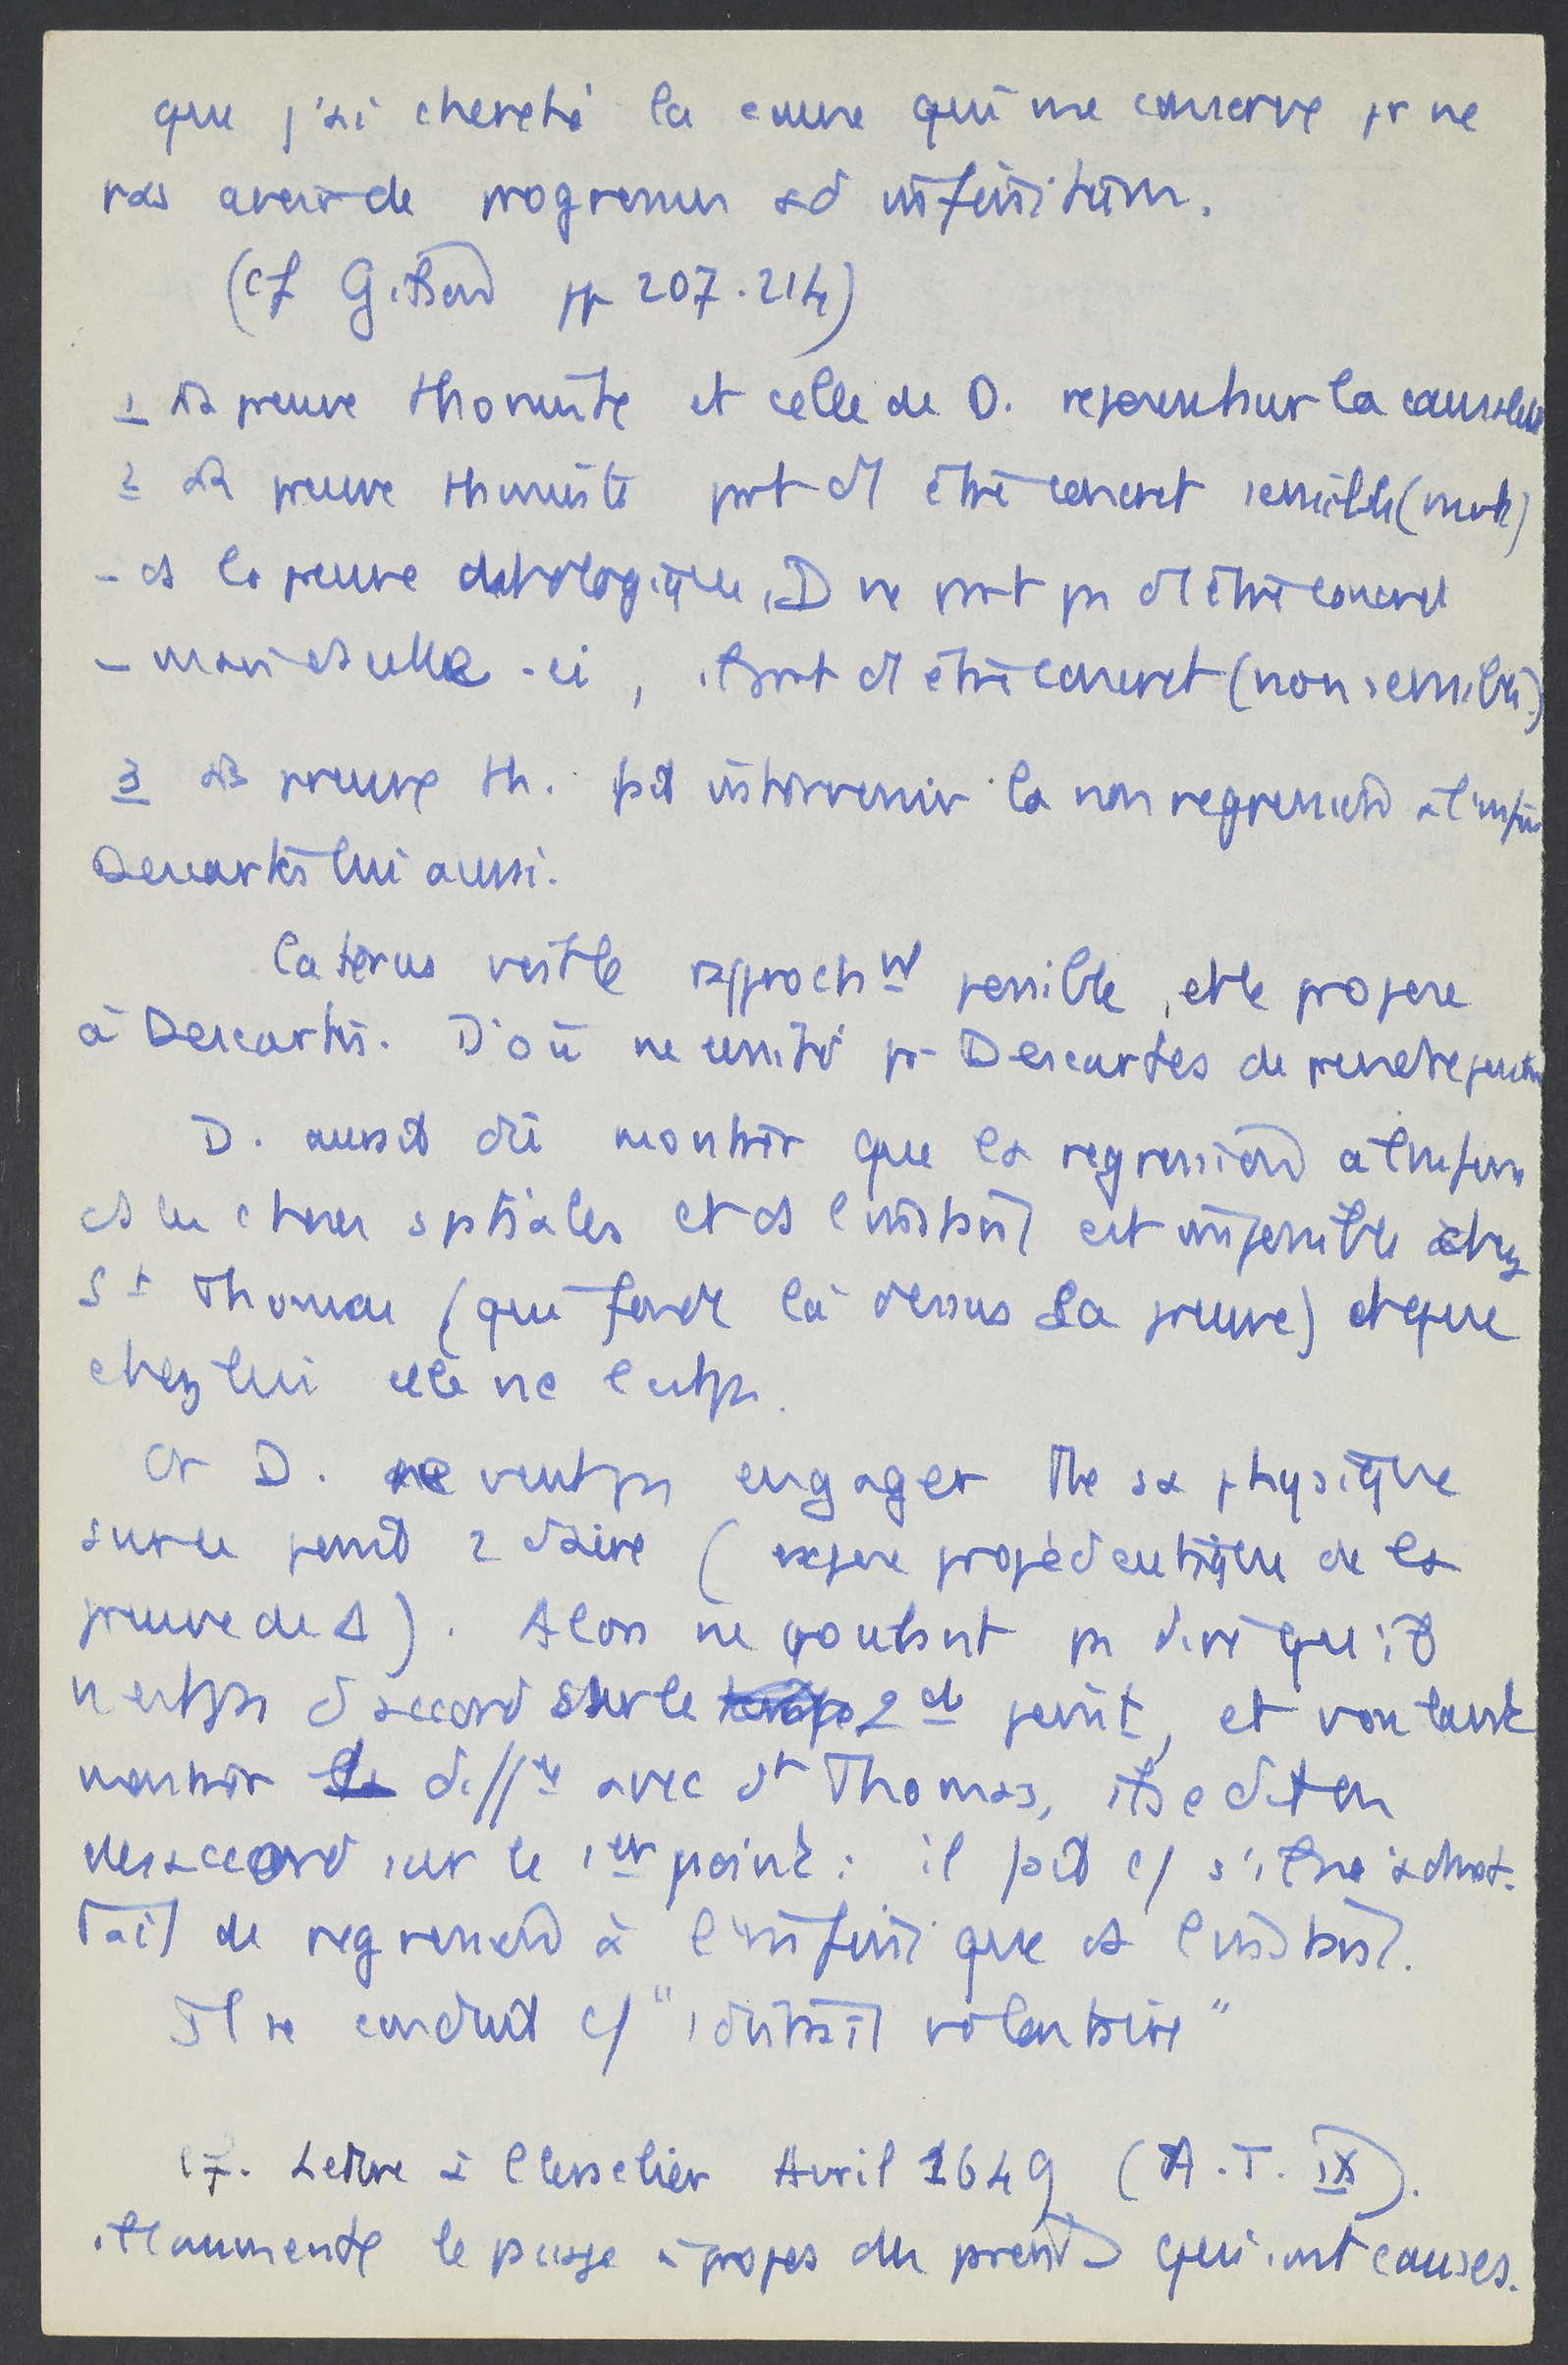 que j'ai cherché la cause qui me conserve pr ne
pas avoir de progressus ad infinitum.
(cf Gilson pp 207.214)
1 La preuve thomiste et celle de D. reposent sur la causalité
2 La preuve thomiste part d'1 être concret sensible (mvt)
- ds la preuve ontologique, D ne part pas d'1 être concret
- mais ds celle-ci, il part d'1 être concret (non sensible)
3 La preuve th. fait intervenir la non regression à l'infini
Descartes lui aussi.
Caterus voit le rapproch mt possible, et le propose
à Descartes. D'où necessité pr Descartes de prendre position
D. aurait dû montrer que la regression à l'infini
ds les choses spatiales et ds l'instant est impossible chez
St Thomas (qui fonde là dessus sa preuve) et que
chez lui elle ne l'est pas.
Or D. ne veut pas engager tte sa physique
sur ce point 2daire ( propédeutique de la
preuve de Δ). Alors ne voulant pas dire qu'il
n'est pas d'accord sur le 2d point, et voulant
montrer la diffce avec St Thomas, il se dit en
desaccord sur le 1er point : il fait c/ s'il n'admet-
tait de regression à l'infini que ds l'instant.
Il se conduit c/ "
 volontaire"
cf. Lettre à Clerselier Avril 1649 (A.T. IX).
il commente le passage à propos du qui sont causes.